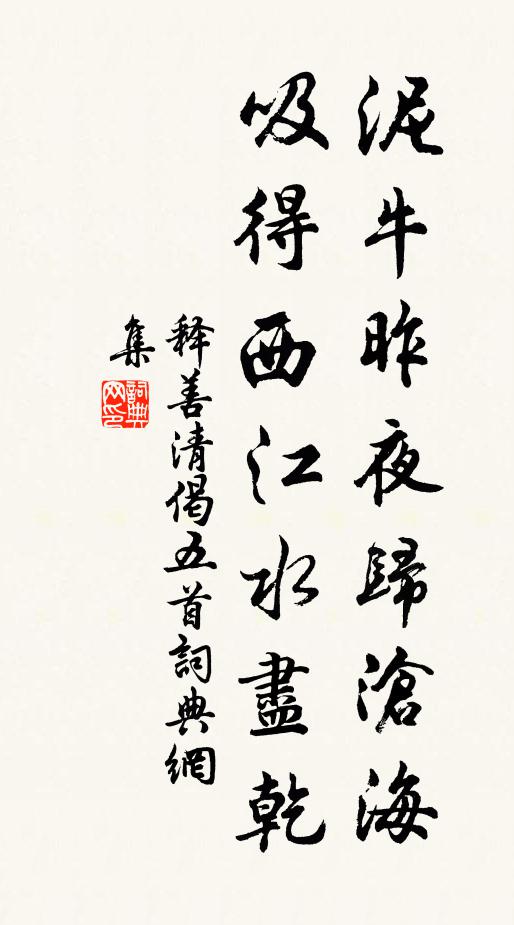 泥牛昨夜歸滄海
吸得西江水盡乾
释善清偈五首詞典網
集
詞典網印